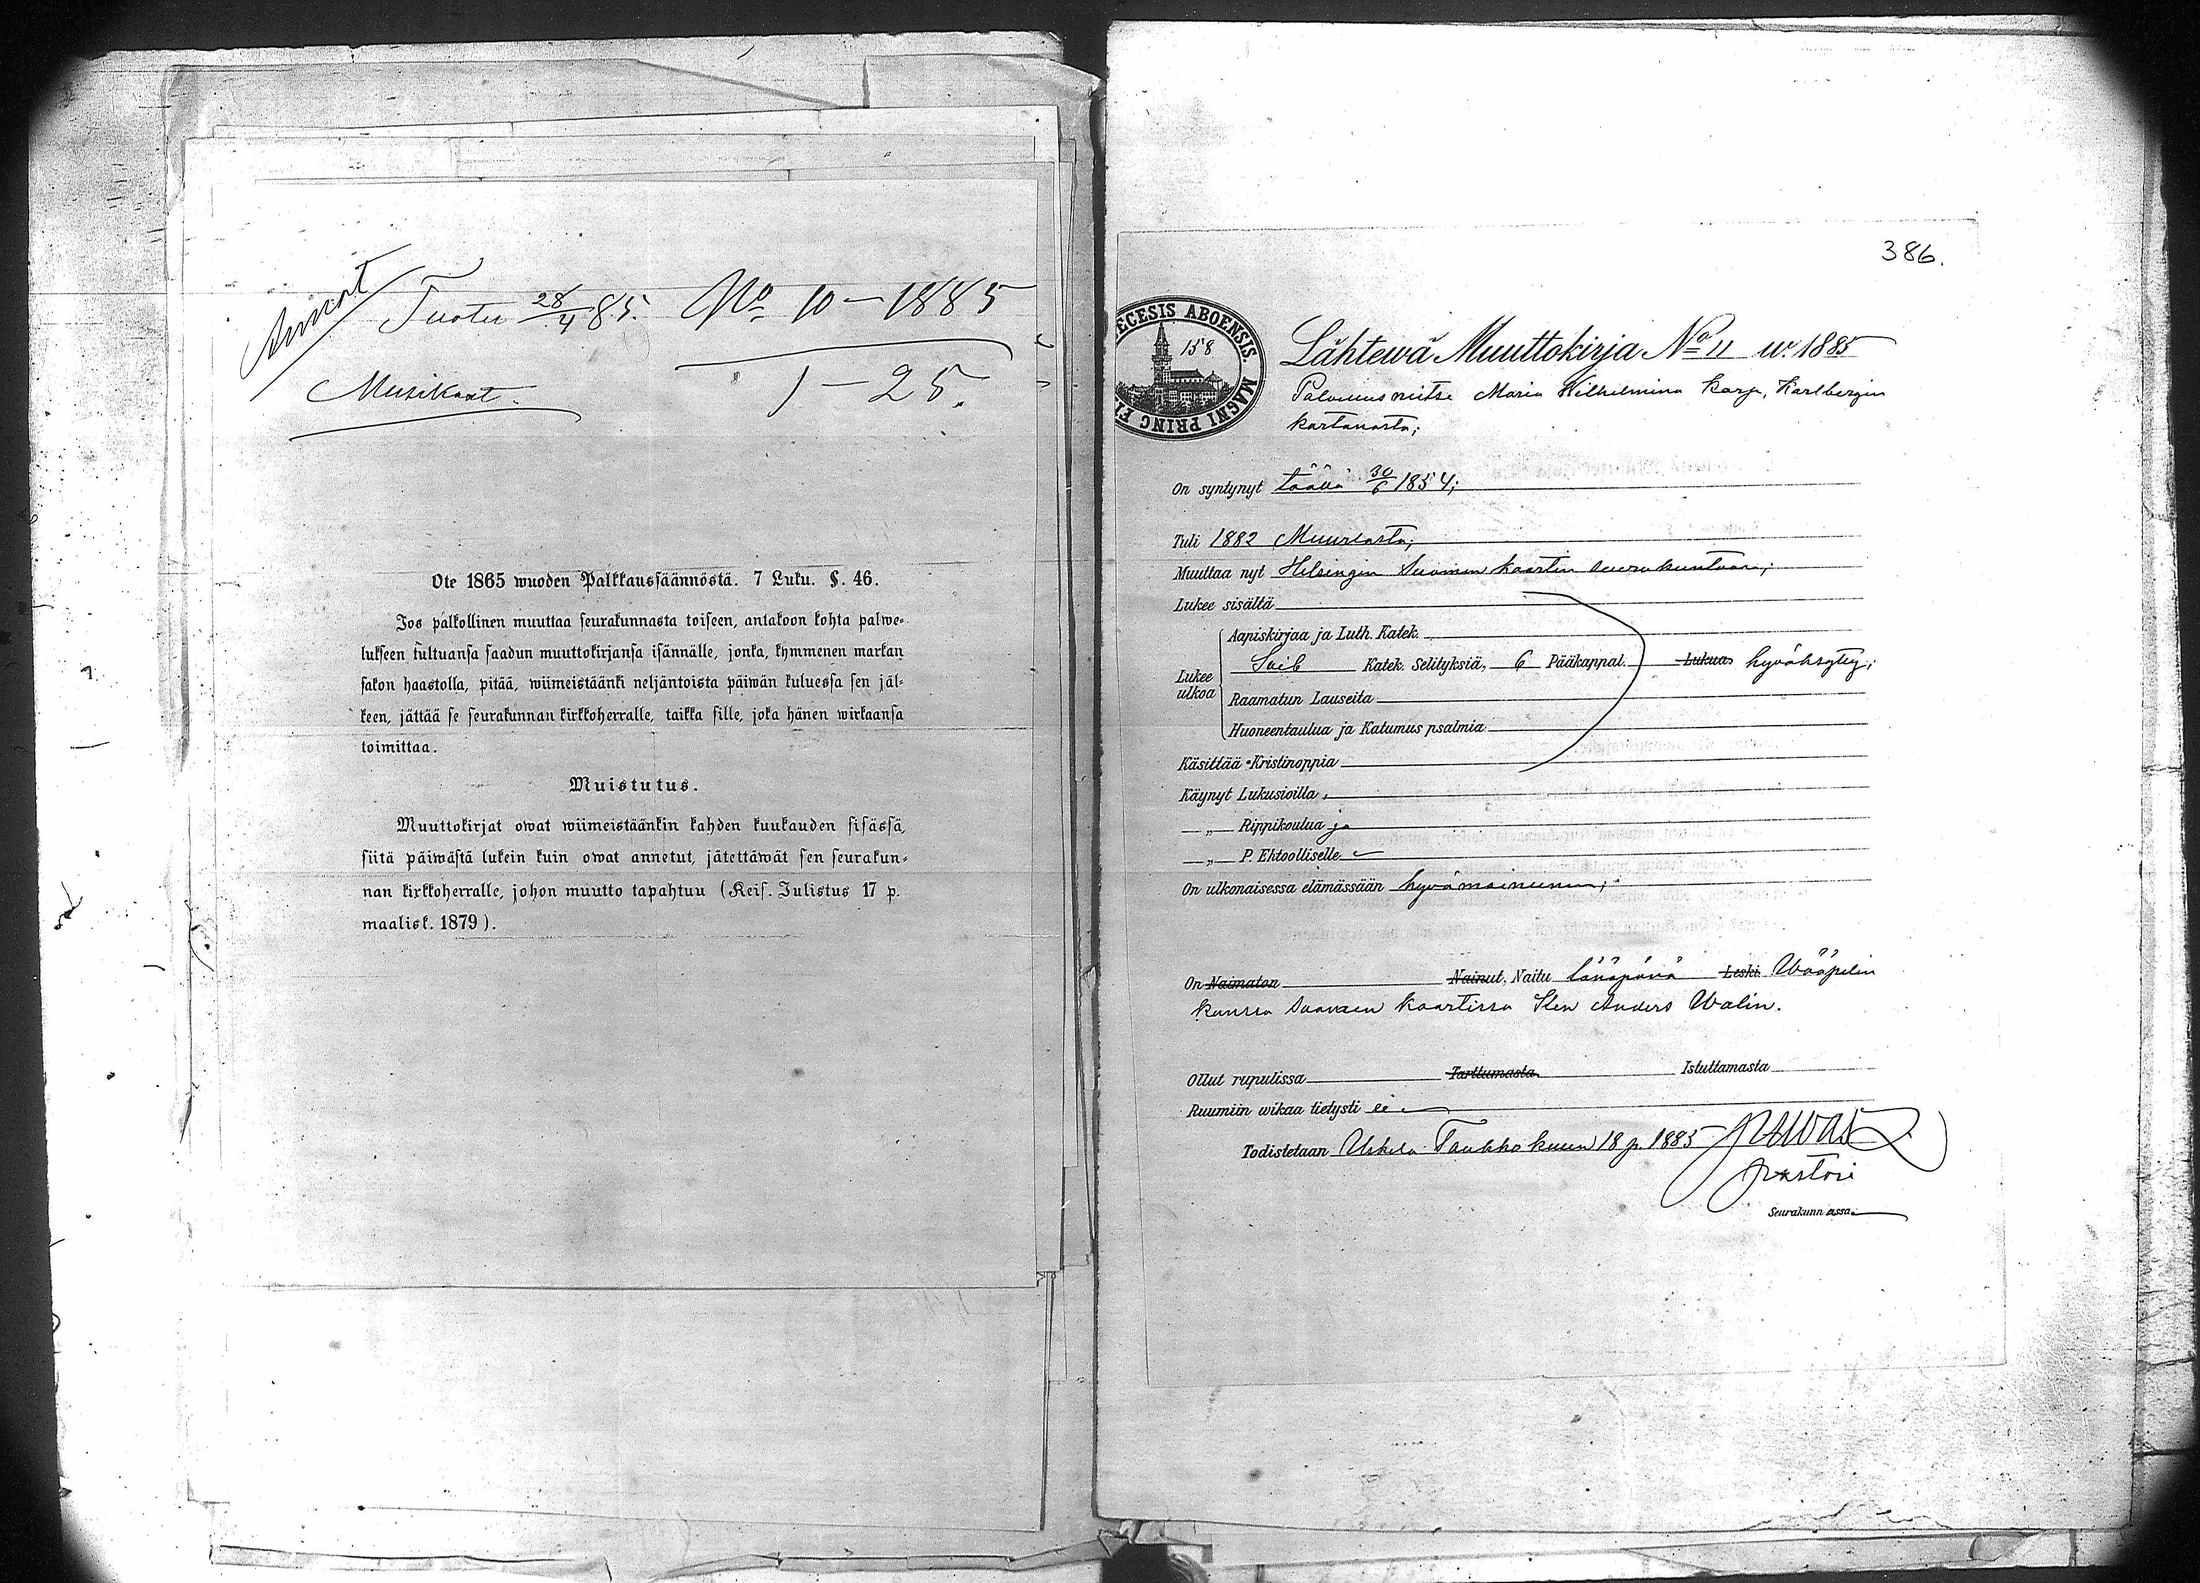 Tuotu 28/4 85. No 10 – 1885
Musikant.
1 – 25.
Ote 1865 wuoden Palkkaussäännöstä. 7 Luku. §. 46.
Jos palkollinen muuttaa seurakunnasta toiseen, antakoon kohta palwe-
lukseen tultuansa saadun muuttokirjansa isännälle, jonka, kymmenen markan
sakon haastolla, pitää, wiimeistäänki neljäntoista päiwän kuluessa sen jäl-
keen, jättää se seurakunnan kirkkoherralle, taikka sille, joka hänen wirkaansa
toimittaa.
Muistutus.
Muuttokirjat owat wiimeistäänkin kahden kuukauden sisässä,
siitä päiwästä lukein kuin owat annetut, jätettäwät sen seurakun-
nan kirkkoherralle, johon muutto tapahtuu (Keis. Julistus 17 p.
maalisk. 1879).
386.
ECESIS ABOENSIS. MAGNI PRINC. FI
158
Lähtewä Muuttokirja No 11 w. 1885
Maria Wilhelmina Karp, Karlbergin
kartanosta;
On syntynyt täällä 30/6 1854;
Tuli 1882 Muurlasta;
Muuttaa nyt Helsingin Suomen kaartin seurakuntaan;
Lukee sisältä
Aapiskirjaa ja Luth. Katek.
Lukee ulkoa Katek. Selityksiä, 6 Pääkappal. Lukua hyväksytty;
Raamatun Lauseita
Huoneentaulua ja Katumus psalmia
Käsittää Kristinoppia
Käynyt Lukusioilla
—„— Rippikoulua ja
—„— P. Ehtoolliselle
On ulkonaisessa elämässään hyvämaineinen;
On Naimaton Nainut, Naitu tänäpänä Leski Wääpelin
kanssa Suomen kaartissa Sten Anders Walin.
Ollut rupulissa Tarttumasta Istuttamasta
Ruumiin wikaa tietysti ei
Todistetaan Uskela Toukokuun 18 p. 1885
pastori
Seurakunnassa